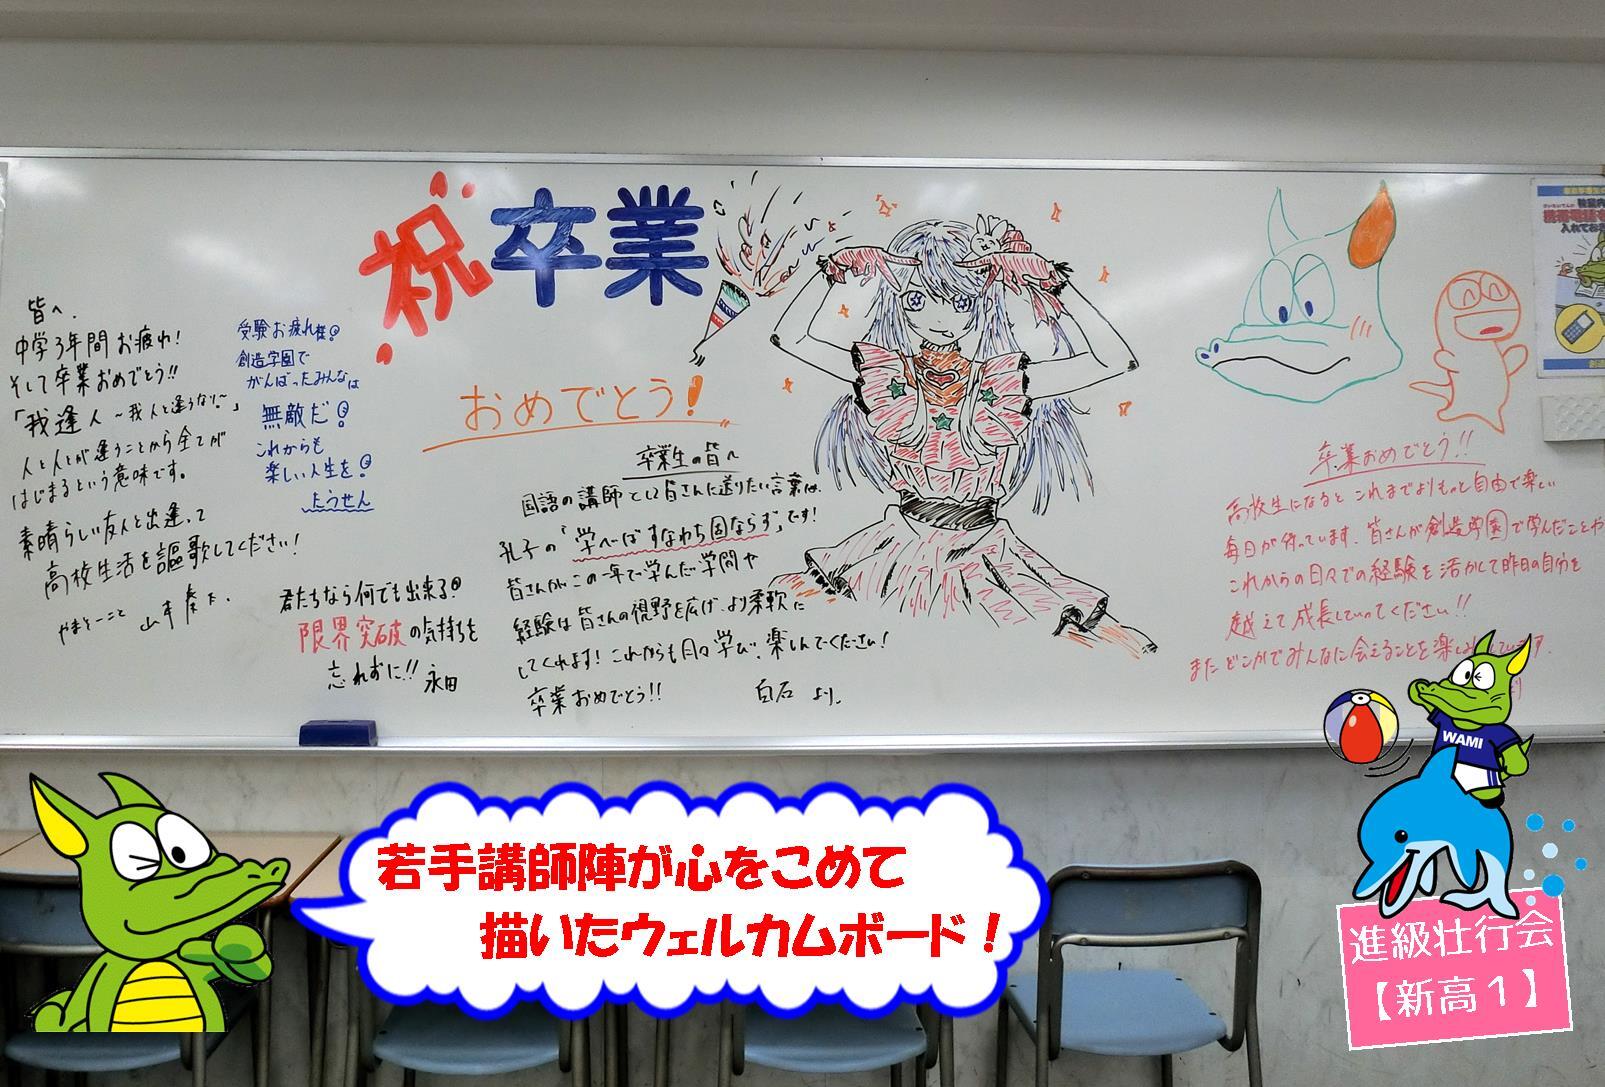 祝卒業
おめでとう!
皆へ、
中学3年間お疲れ!
そして卒業おめでとう!!
「我逢人 ～我人と逢うなり～」
人と人とが逢うことから全てが
はじまるという意味です。
素晴らしい友人と出逢って
高校生活を謳歌してください!
受験お疲れ様!
創造学園で
がんばったみんなは
無敵だ!
これからも
楽しい人生を!
とうせん
君たちなら何でも出来る
限界突破の気持ちを
忘れずに!! 永田
卒業生の皆へ
国語の講師として皆さんに送りたい言葉は、
孔子の「学べばすなわち固ならず」です!
皆さんがこの一年で学んだ学問や
経験は皆さんの視野を広げ、より柔軟に
してくれます! これからも日々学び、楽しんでください!
卒業おめでとう!!
白石 より。
卒業おめでとう!!
高校生になると これまでよりもっと自由で楽しい
毎日が待っています。皆さんが創造学園で学んだことや
これからの日々での経験を活かして昨日の自分を
越えて成長していってください!!
またどこかでみんなに会えることを楽しみにしています。
携帯電話を
入れてお
WAMI
若手講師陣が心をこめて
描いたウェルカムボード！
進級壮行会
【新高１】